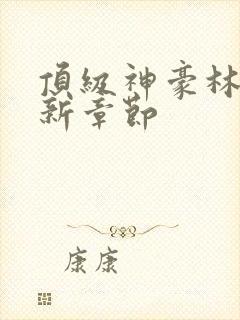 頂級神豪林
新章節
康康